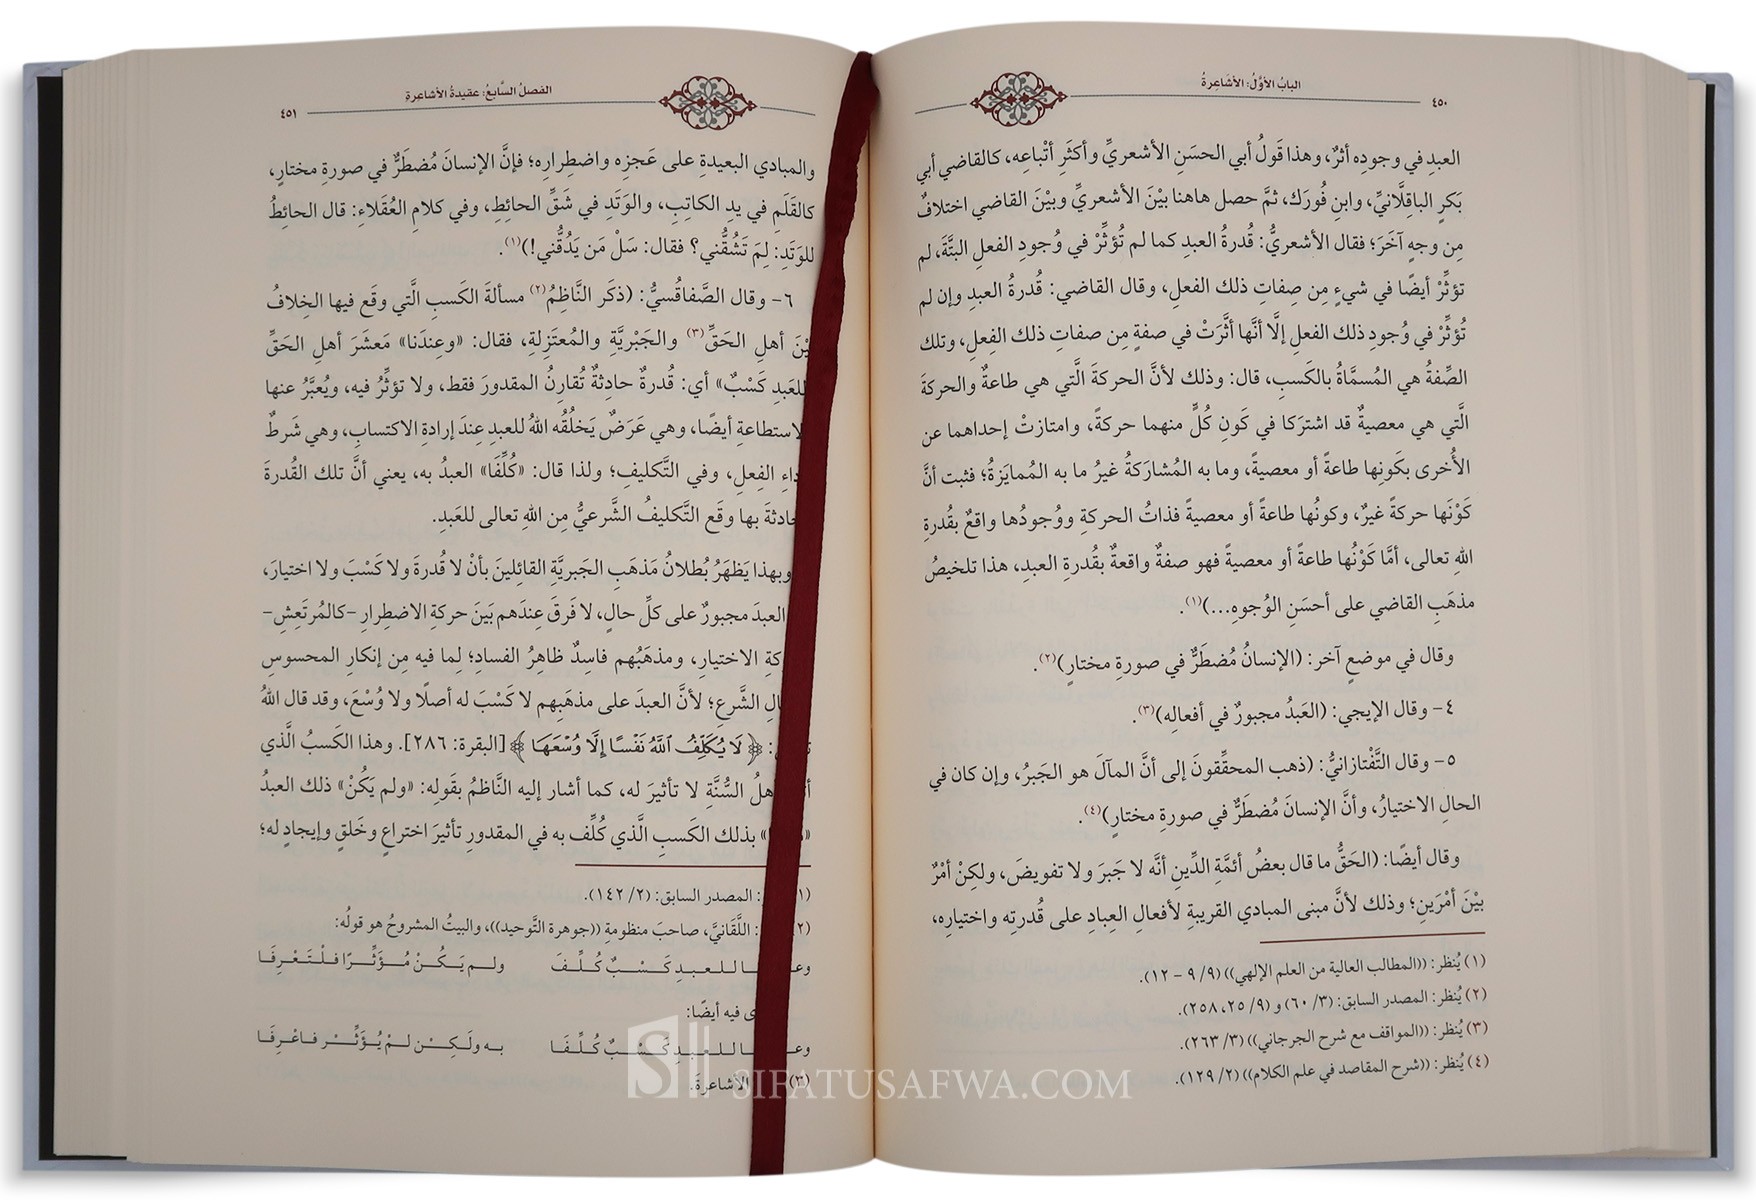 البابُ الأوَّلُ: الأشَاعِرةُ
٤٥٠
العبدِ في وجودِه أثرٌ، وهذا قَولُ أبي الحسَنِ الأشعريِّ وأكثَرِ أتْباعِه، كالقاضي أبي
بَكرٍ الباقِلَّانيِّ، وابنِ فُورَك، ثمَّ حصل هاهنا بيْنَ الأشعريِّ وبيْنَ القاضي اختلافٌ
مِن وجهٍ آخَرَ؛ فقال الأشعريُّ: قُدرةُ العبدِ كما لم تُؤثِّرْ في وُجودِ الفعلِ البتَّةَ، لم
تؤثِّرْ أيضًا في شيءٍ مِن صِفاتِ ذلك الفعلِ، وقال القاضي: قُدرةُ العبدِ وإن لم
تُؤثِّرْ في وُجودِ ذلك الفعلِ إلَّا أنَّها أثَّرَتْ في صفةٍ مِن صفاتِ ذلك الفِعلِ، وتلك
الصِّفةُ هي المُسمَّاةُ بالكَسبِ، قال: وذلك لأنَّ الحركةَ الَّتي هي طاعةٌ والحركةَ
الَّتي هي معصيةٌ قد اشترَكا في كَونِ كُلٍّ منهما حركةً، وامتازتْ إحداهما عن
الأُخرى بكَونِها طاعةً أو معصيةً، وما به المُشارَكةُ غيرُ ما به المُمايَزةُ؛ فثبت أنَّ
كَوْنَها حركةً غيرٌ، وكونُها طاعةً أو معصيةً فذاتُ الحركةِ ووُجودُها واقعٌ بقُدرةِ
اللهِ تعالى، أمَّا كَوْنُها طاعةً أو معصيةً فهو صفةٌ واقعةٌ بقُدرةِ العبدِ، هذا تلخيصُ
مذهَبِ القاضي على أحسَنِ الوُجوهِ...)(١).
وقال في موضعٍ آخر: (الإنسانُ مُضطَرٌّ في صورةِ مختارٍ)(٢).
٤- وقال الإيجي: (العَبدُ مجبورٌ في أفعالِه)(٣).
٥- وقال التَّفْتازانيُّ: (ذهب المحقِّقونَ إلى أنَّ المآلَ هو الجَبرُ، وإن كان في
الحالِ الاختيارُ، وأنَّ الإنسانَ مُضطَرٌّ في صورةِ مختارٍ)(٤).
وقال أيضًا: (الحَقُّ ما قال بعضُ أئمَّةِ الدِّينِ أنَّه لا جَبرَ ولا تفويضَ، ولكِنْ أمْرٌ
بيْنَ أمْرَينِ؛ وذلك لأنَّ مبنى المبادي القريبةِ لأفعالِ العِبادِ على قُدرتِه واختيارِه،
(١) يُنظر: ((المطالب العالية من العلم الإلهي)) (٩/ ٩ - ١٢).
(٢) يُنظر: المصدر السابق: (٣/ ٦٠) و (٩/ ٢٥، ٢٥٨).
(٣) يُنظر: ((المواقف مع شرح الجرجاني)) (٣/ ٢٦٣).
(٤) يُنظر: ((شرح المقاصد في علم الكلام)) (٢/ ١٢٩).
الفصلُ السَّابعُ: عقيدةُ الأشاعرةِ
٤٥١
والمبادي البعيدةِ على عَجزِه واضطِرارِه؛ فإنَّ الإنسانَ مُضطَرٌّ في صورةِ مختارٍ،
كالقَلَمِ في يدِ الكاتِبِ، والوَتَدِ في شَقِّ الحائطِ، وفي كلامِ العُقَلاءِ: قال الحائطُ
للوَتَدِ: لِمَ تَشُقُّني؟ فقال: سَلْ مَن يَدُقُّني!)(١).
٦- وقال الصَّفاقُسيُّ: (ذكَر النَّاظِمُ(٢) مسألةَ الكَسبِ الَّتي وقَع فيها الخِلافُ
أهلِ الحَقِّ(٣) والجَبْريَّةِ والمُعتَزِلةِ، فقال: «وعِندَنا» مَعشَرَ أهلِ الحَقِّ
كَسْبٌ» أي: قُدرةٌ حادِثةٌ تُقارِنُ المقدورَ فقط، ولا تؤثِّرُ فيه، ويُعبَّرُ عنها
أيضًا، وهي عَرَضٌ يَخلُقُه اللهُ للعبدِ عِندَ إرادةِ الاكتسابِ، وهي شَرطٌ
الفِعلِ، وفي التَّكليفِ؛ ولذا قال: «كُلِّفَا» العبدُ به، يعني أنَّ تلك القُدرةَ
بها وقَع التَّكليفُ الشَّرعيُّ مِن اللهِ تعالى للعَبدِ.
وبهذا يَظهَرُ بُطلانُ مَذهَبِ الجَبريَّةِ القائلينَ بأنْ لا قُدرةَ ولا كَسْبَ ولا اختيارَ،
العبدَ مجبورٌ على كلِّ حالٍ، لا فَرقَ عِندَهم بَينَ حركةِ الاضطِرارِ -كالمُرتَعِشِ-
الاختيارِ، ومذهَبُهم فاسِدٌ ظاهِرُ الفسادِ؛ لِما فيه مِن إنكارِ المحسوسِ
الشَّرعِ؛ لأنَّ العبدَ على مذهَبِهم لا كَسْبَ له أصلًا ولا وُسْعَ، وقد قال اللهُ
﴿لَا يُكَلِّفُ ٱللَّهُ نَفْسًا إِلَّا وُسْعَهَا﴾ [البقرة: ٢٨٦]. وهذا الكَسبُ الَّذي
السُّنَّةِ لا تأثيرَ له، كما أشار إليه النَّاظمُ بقَولِه: «ولم يَكُنْ» ذلك العبدُ
بذلك الكَسبِ الَّذي كُلِّف به في المقدورِ تأثيرَ اختراعٍ وخَلقٍ وإيجادٍ له؛
المصدر السابق: (٢/ ١٤٢).
(٢) اللَّقانيَّ، صاحبَ منظومةِ ((جوهرة التَّوحيد))، والبيتُ المشروحُ هو قولُه:
للعبدِ كَسْبٌ كُلِّفَ ولم يَكُنْ مُؤَثِّرًا فلْتَعْرِفَا
فيه أيضًا:
للعبدِ كَسْبٌ كُلِّفَا به ولَكِنْ لمْ يُؤَثِّرْ فاعْرِفَا
(٣) الأشاعرةَ.
SIFATUSAFWA.COM